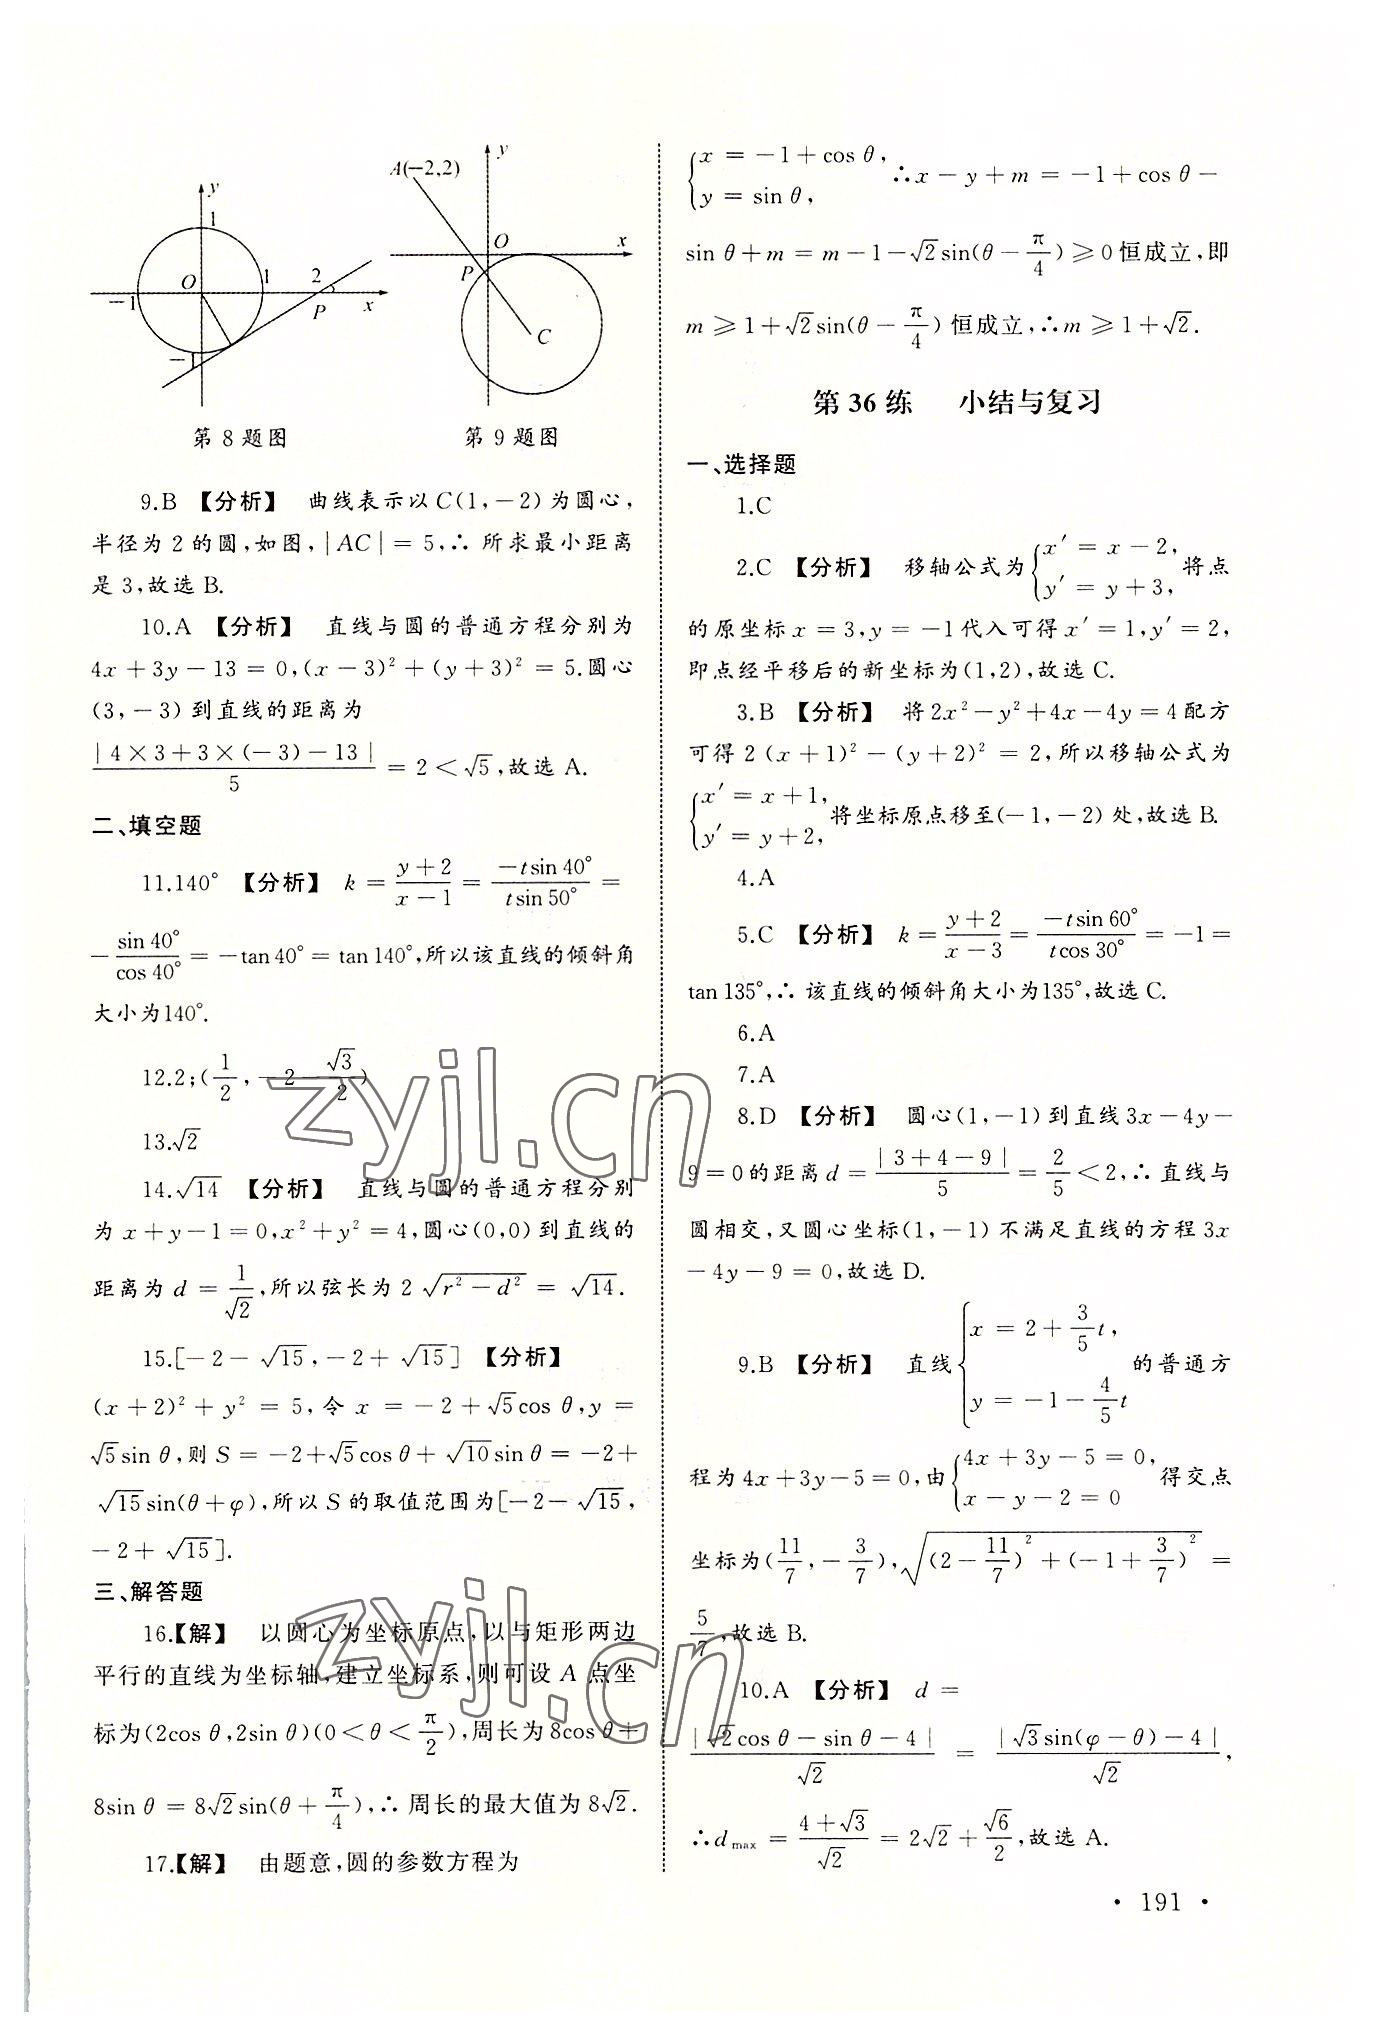 y
1
O
-1
1
2
P
x
-1
第8题图
A(-2,2)
y
O
x
P
C
第9题图
9.B 【分析】 曲线表示以C(1,-2)为圆心,
半径为2的圆,如图,|AC|=5,∴所求最小距离
是3,故选B.
10.A 【分析】 直线与圆的普通方程分别为
4x+3y-13=0,(x-3)²+(y+3)²=5.圆心
(3,-3)到直线的距离为
|4×3+3×(-3)-13|/5=2<√5,故选A.
二、填空题
11.140° 【分析】 k=(y+2)/(x-1)=(-tsin 40°)/(tsin 50°)=
-sin 40°/cos 40°=-tan 40°=tan 140°,所以该直线的倾斜角
大小为140°.
12.2;(1/2,-2-√3/2)
13.√2
14.√14 【分析】 直线与圆的普通方程分别
为x+y-1=0,x²+y²=4,圆心(0,0)到直线的
距离为d=1/√2,所以弦长为2√(r²-d²)=√14.
15.[-2-√15,-2+√15] 【分析】
(x+2)²+y²=5,令x=-2+√5cos θ,y=
√5sin θ,则S=-2+√5cos θ+√10sin θ=-2+
√15sin(θ+φ),所以S的取值范围为[-2-√15,
-2+√15].
三、解答题
16.【解】 以圆心为坐标原点,以与矩形两边
平行的直线为坐标轴,建立坐标系,则可设A点坐
标为(2cos θ,2sin θ)(0<θ<π/2),周长为8cos θ+
8sin θ=8√2sin(θ+π/4),∴周长的最大值为8√2.
17.【解】 由题意,圆的参数方程为
{x=-1+cos θ,
y=sin θ, ∴x-y+m=-1+cos θ-
sin θ+m=m-1-√2sin(θ-π/4)⩾0恒成立,即
m⩾1+√2sin(θ-π/4)恒成立,∴m⩾1+√2.
第36练 小结与复习
一、选择题
1.C
2.C 【分析】 移轴公式为{x′=x-2,
y′=y+3, 将点
的原坐标x=3,y=-1代入可得x′=1,y′=2,
即点经平移后的新坐标为(1,2),故选C.
3.B 【分析】 将2x²-y²+4x-4y=4配方
可得2(x+1)²-(y+2)²=2,所以移轴公式为
{x′=x+1,
y′=y+2, 将坐标原点移至(-1,-2)处,故选B.
4.A
5.C 【分析】 k=(y+2)/(x-3)=(-tsin 60°)/(tcos 30°)=-1=
tan 135°,∴该直线的倾斜角大小为135°,故选C.
6.A
7.A
8.D 【分析】 圆心(1,-1)到直线3x-4y-
9=0的距离d=|3+4-9|/5=2/5<2,∴直线与
圆相交,又圆心坐标(1,-1)不满足直线的方程3x
-4y-9=0,故选D.
9.B 【分析】 直线{x=2+3/5t,
y=-1-4/5t 的普通方
程为4x+3y-5=0,由{4x+3y-5=0,
x-y-2=0 得交点
坐标为(11/7,-3/7),√((2-11/7)²+(-1+3/7)²)=
5/7,故选B.
10.A 【分析】 d=
|√2cos θ-sin θ-4|/√2=|√3sin(φ-θ)-4|/√2,
∴dmax=(4+√3)/√2=2√2+√6/2,故选A.
· 191 ·
zyjl.cn
zyjl.cn